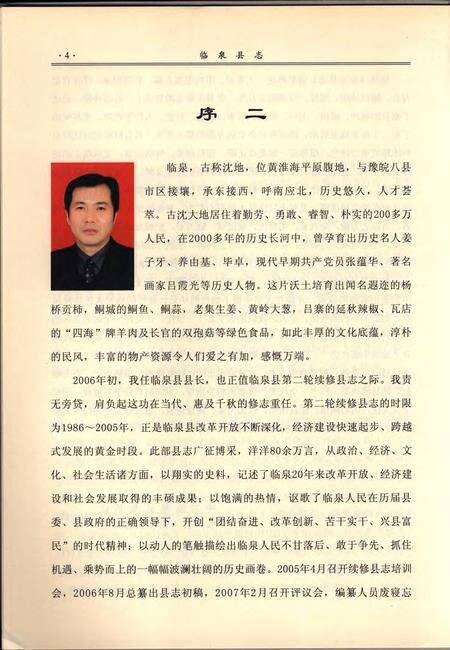 ·4· 临泉县志
序 二
临泉，古称沈地，位黄淮海平原腹地，与豫皖八县
市区接壤，承东接西，呼南应北，历史悠久，人才荟
萃。古沈大地居住着勤劳、勇敢、睿智、朴实的200多万
人民，在2000多年的历史长河中，曾孕育出历史名人姜
子牙、养由基、毕卓，现代早期共产党员张蕴华、著名
画家吕霞光等历史人物。这片沃土培育出闻名遐迩的杨
桥贡柿，鲖城的鲖鱼、鲖蒜，老集生姜、黄岭大葱，吕寨的延秋辣椒、瓦店
的“四海”牌羊肉及长官的双孢菇等绿色食品，如此丰厚的文化底蕴，淳朴
的民风，丰富的物产资源令人们爱之有加，感慨万端。
2006年初，我任临泉县县长，也正值临泉县第二轮续修县志之际。我责
无旁贷，肩负起这功在当代、惠及千秋的修志重任。第二轮续修县志的时限
为1986～2005年，正是临泉县改革开放不断深化，经济建设快速起步、跨越
式发展的黄金时段。此部县志广征博采，洋洋80余万言，从政治、经济、文
化、社会生活诸方面，以翔实的史料，记述了临泉20年来改革开放、经济建
设和社会发展取得的丰硕成果；以饱满的热情，讴歌了临泉人民在历届县
委、县政府的正确领导下，开创“团结奋进、改革创新、苦干实干、兴县富
民”的时代精神；以动人的笔触描绘出临泉人民不甘落后、敢于争先、抓住
机遇、乘势而上的一幅幅波澜壮阔的历史画卷。2005年4月召开续修县志培训
会，2006年8月总纂出县志初稿，2007年2月召开评议会，编纂人员废寝忘